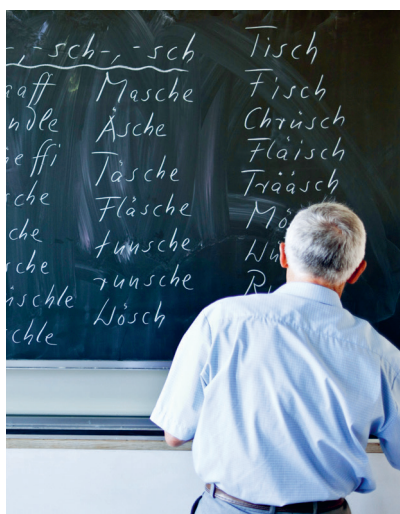 -, -sch-, -sch
aaff
ndle
effi
che
che
sche
schle
chle
Masche
Äsche
Täsche
Fläsche
tuusche
ruusche
Wösch
Tisch
Fisch
Chrüsch
Fläisch
Trääsch